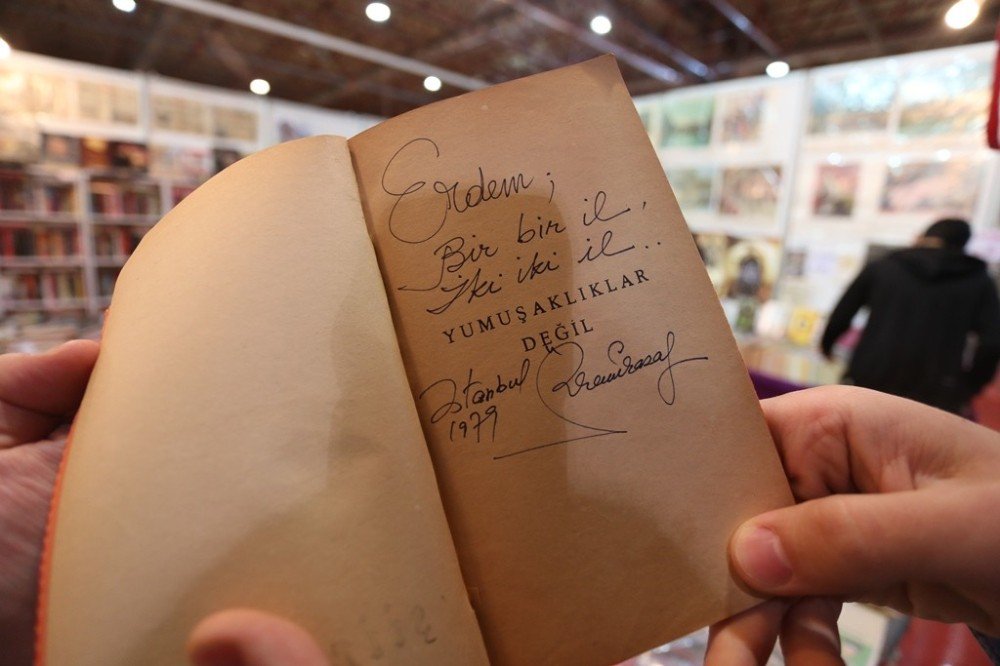 Erdem;
Bir bir il,
İki iki il..
YUMUŞAKLIKLAR
DEĞİL
İstanbul
1979